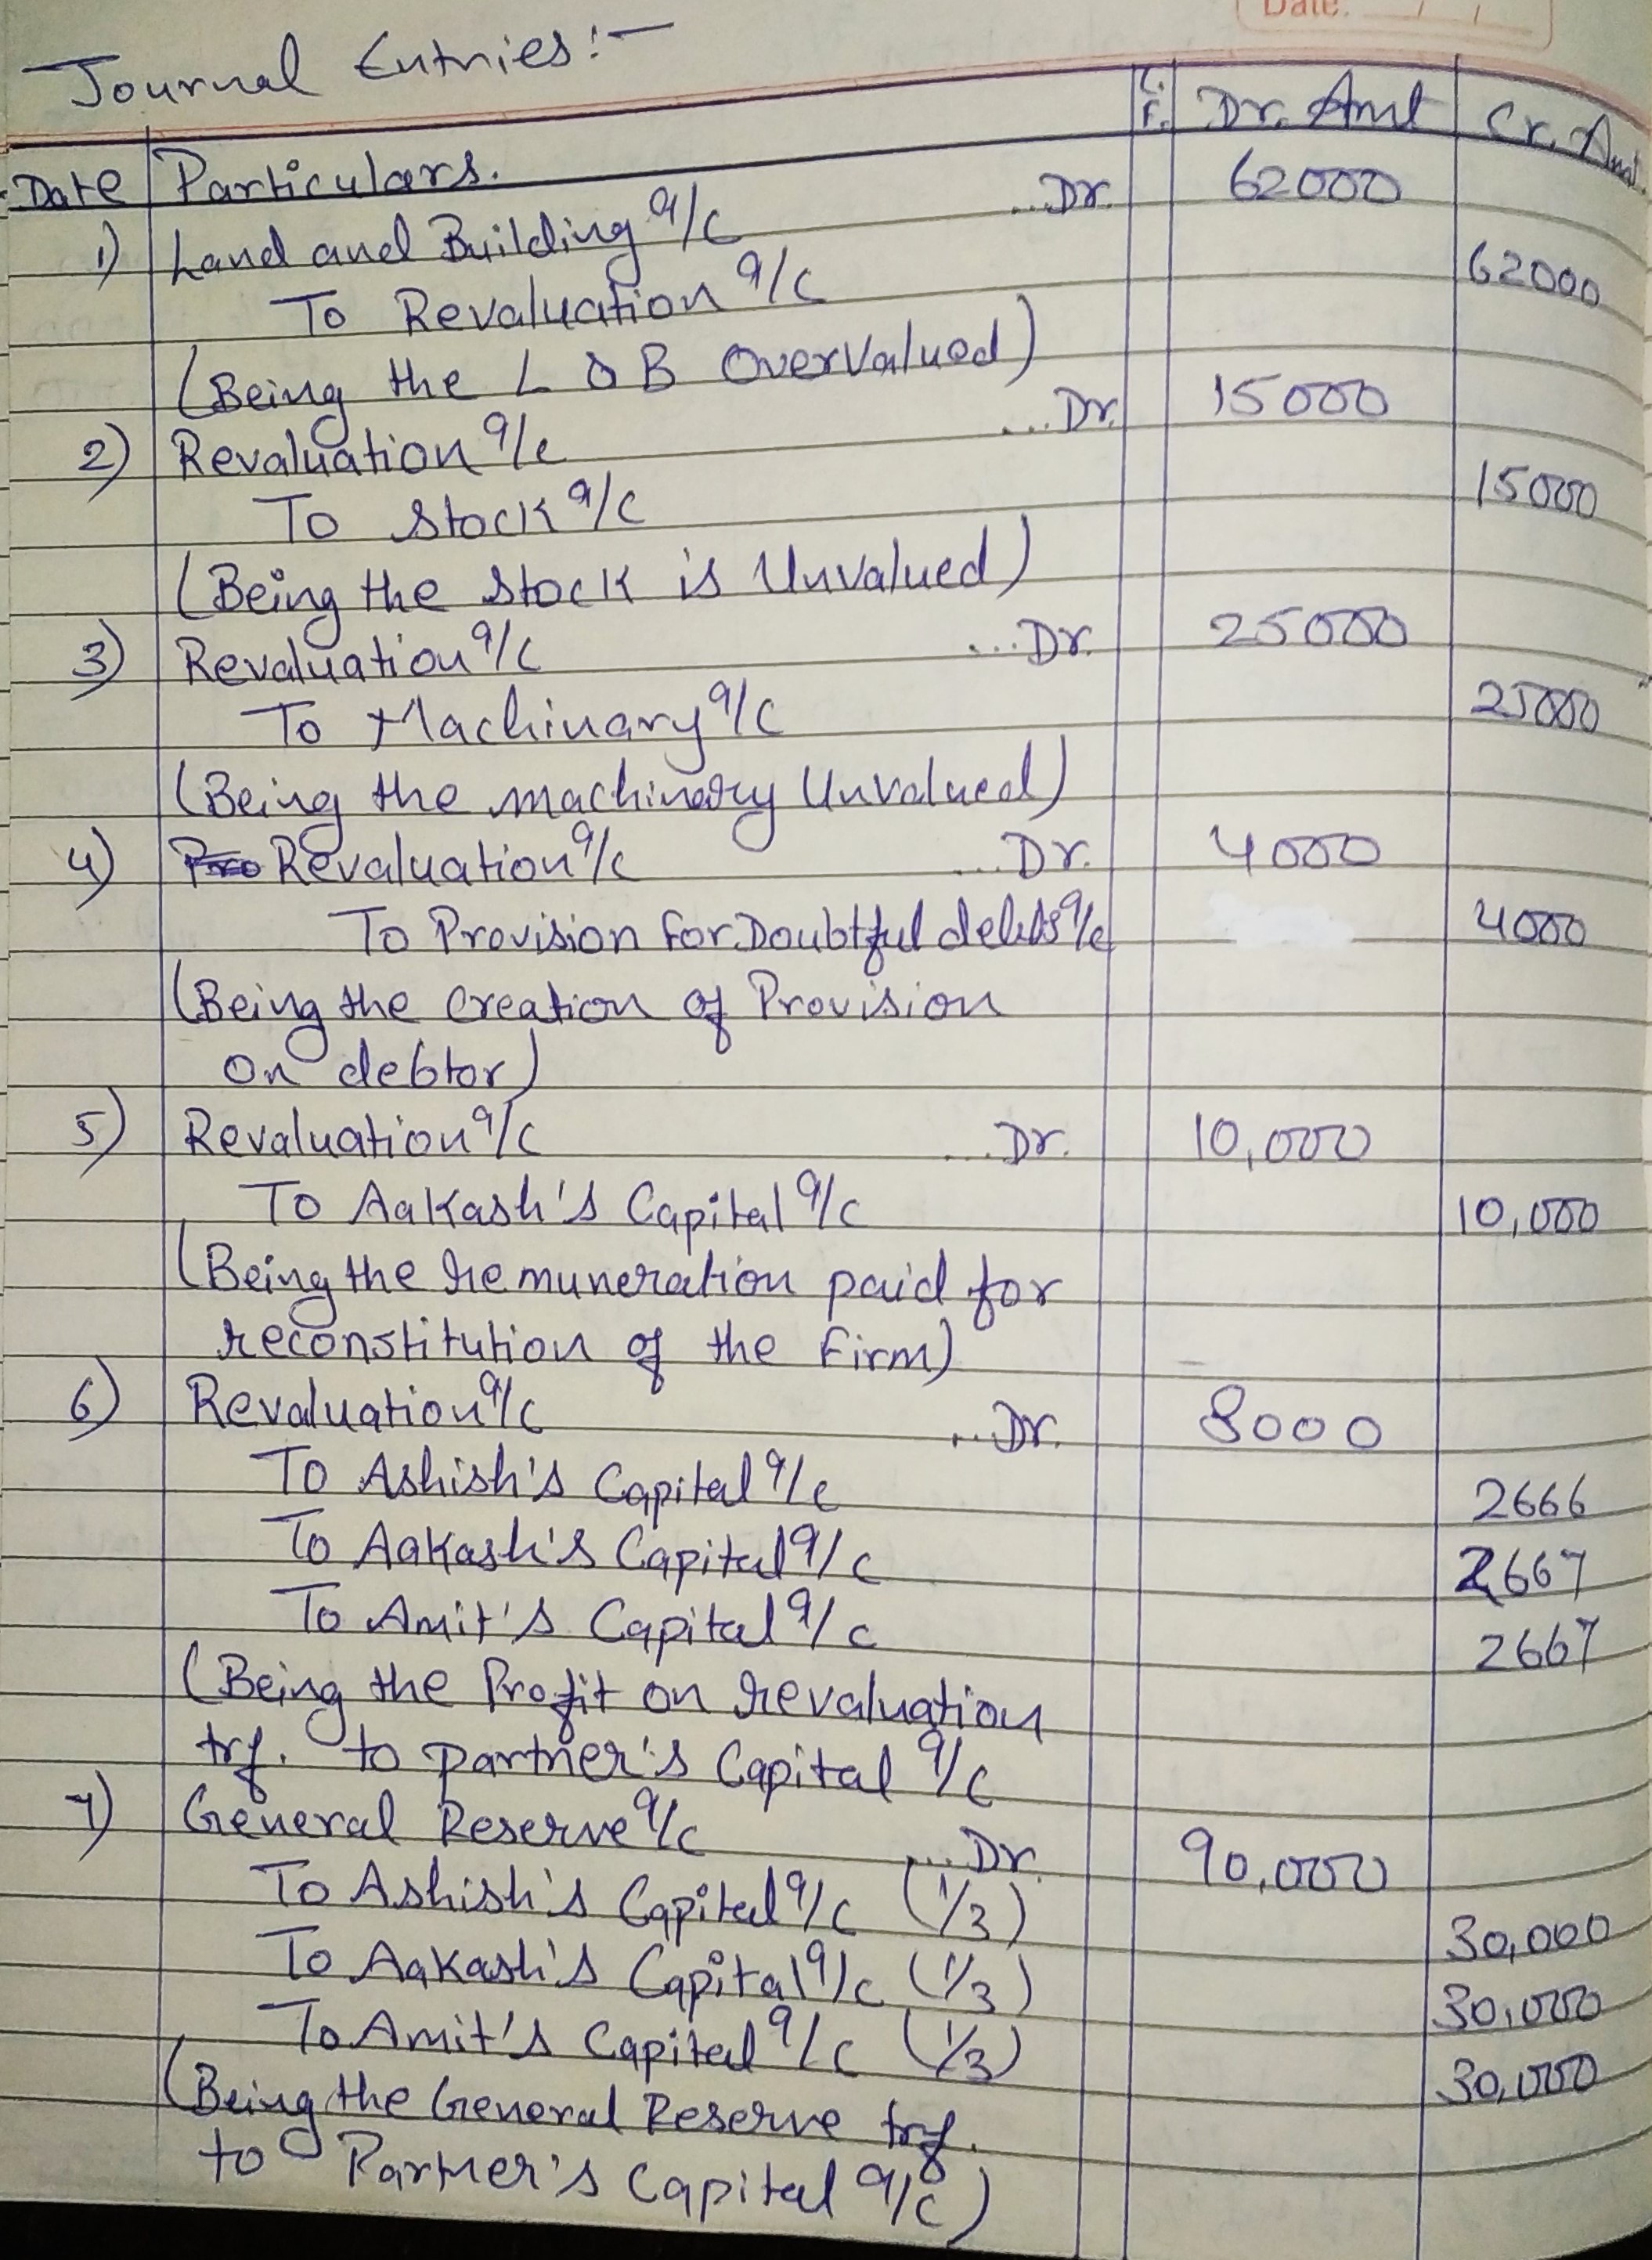 Date: / /
Journal Entries:-
Date Particulars. L.F. Dr. Amt Cr. Amt.
1) Land and Building a/c ...Dr. 62000
To Revaluation a/c 62000
(Being the L & B Overvalued)
2) Revaluation a/c ...Dr. 15000
To Stock a/c 15000
(Being the Stock is Unvalued)
3) Revaluation a/c ...Dr. 25000
To Machinary a/c 25000
(Being the machinary Unvalued)
4) Pro Revaluation a/c ...Dr. 4000
To Provision for Doubtful debts a/c 4000
(Being the Creation of Provision
on debtor)
5) Revaluation a/c ...Dr. 10,000
To Aakash's Capital a/c 10,000
(Being the remuneration paid for
reconstitution of the firm)
6) Revaluation a/c ...Dr. 8000
To Ashish's Capital a/c 2666
To Aakash's Capital a/c 2667
To Amit's Capital a/c 2667
(Being the Profit on revaluation
trf. to partner's Capital a/c
7) General Reserve a/c ...Dr. 90,000
To Ashish's Capital a/c (1/3) 30,000
To Aakash's Capital a/c (1/3) 30,000
To Amit's Capital a/c (1/3) 30,000
(Being the General Reserve trf.
to Partner's Capital a/c)